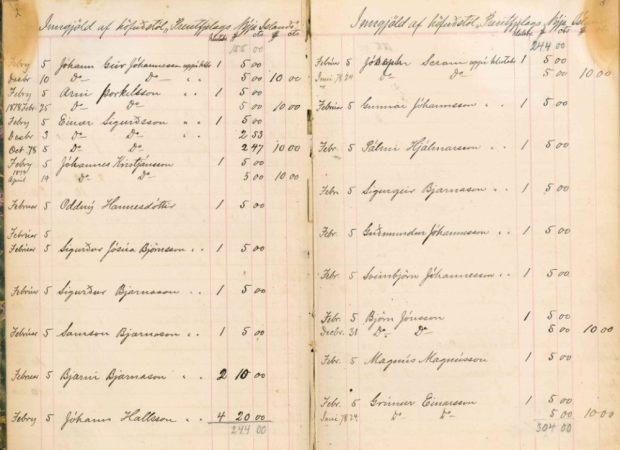 Inngjöld af höfuðstól, Prentfjelags Nýja Islands
155 00
Febry 5 Jóhann Geir Jóhannesson uppí hlut 1 5 00
Desbr 10 Do Do 5 00 10 00
Febry 5 Arni Þorkelsson " " 1 5 00
1878 Febr 25 Do Do 5 00 10 00
Febry 5 Einar Sigurðsson " " 1 5 00
Desbr 3 Do Do 2 53
Oct 78 5 Do Do 2 47 10 00
Febry 5 Jóhannes Kristjánsson 1 5 00
April 19 Do Do 5 00 10 00
Februar 5 Oddný Hannesdóttir 1 5 00
Februar 5
Februar 5 Sigurður Jósúa Björnsson " " 1 5 00
Februar 5 Sigurður Bjarnason " " 1 5 00
Februar 5 Samson Bjarnason " " 1 5 00
Februar 5 Bjarni Bjarnason " " 2 10 00
Febry 5 Jóhann Hallsson " " 4 20 00
244 00
Inngjöld af höfuðstól, Prentfjelags Nýja Islands
244 00
Februar 5 Jóseph Schram uppí hlutabr 1 5 00
Juni 78 24 Do Do 5 00 10 00
Februar 5 Gunnar Jóhannsson " 1 5 00
Febr. 5 Pálmi Hjálmarsson " 1 5 00
Febr. 5 Sigurgeir Bjarnason " 1 5 00
Febr. 5 Guðmundur Jóhannesson " 1 5 00
Febr. 5 Sveinbjörn Jóhannesson " " 1 5 00
Febr. 5 Björn Jónsson 1 5 00
Decbr. 31 Do Do 5 00 10 00
Febr. 5 Magnús Magnússon 1 5 00
Febr. 5 Grímur Einarsson 1 5 00
Juni 78 24 Do Do 5 00 10 00
304 00